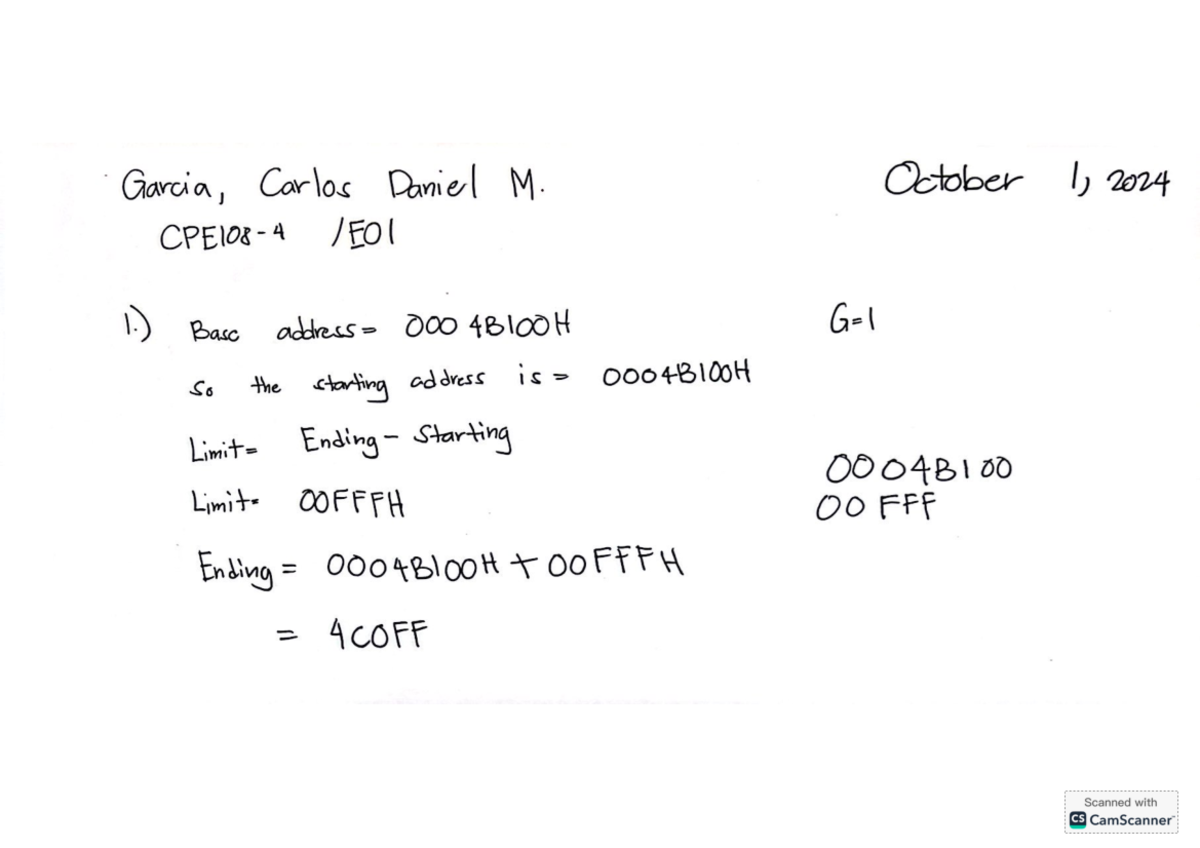 Garcia, Carlos Daniel M.
October 1, 2024
CPE108-4 /E01
1.) Base address = 0004B100H
G=1
So the starting address is = 0004B100H
Limit = Ending - Starting
0004B100
Limit = 00FFFH
00FFF
Ending = 0004B100H + 00FFFH
= 4C0FF
Scanned with
CS CamScanner